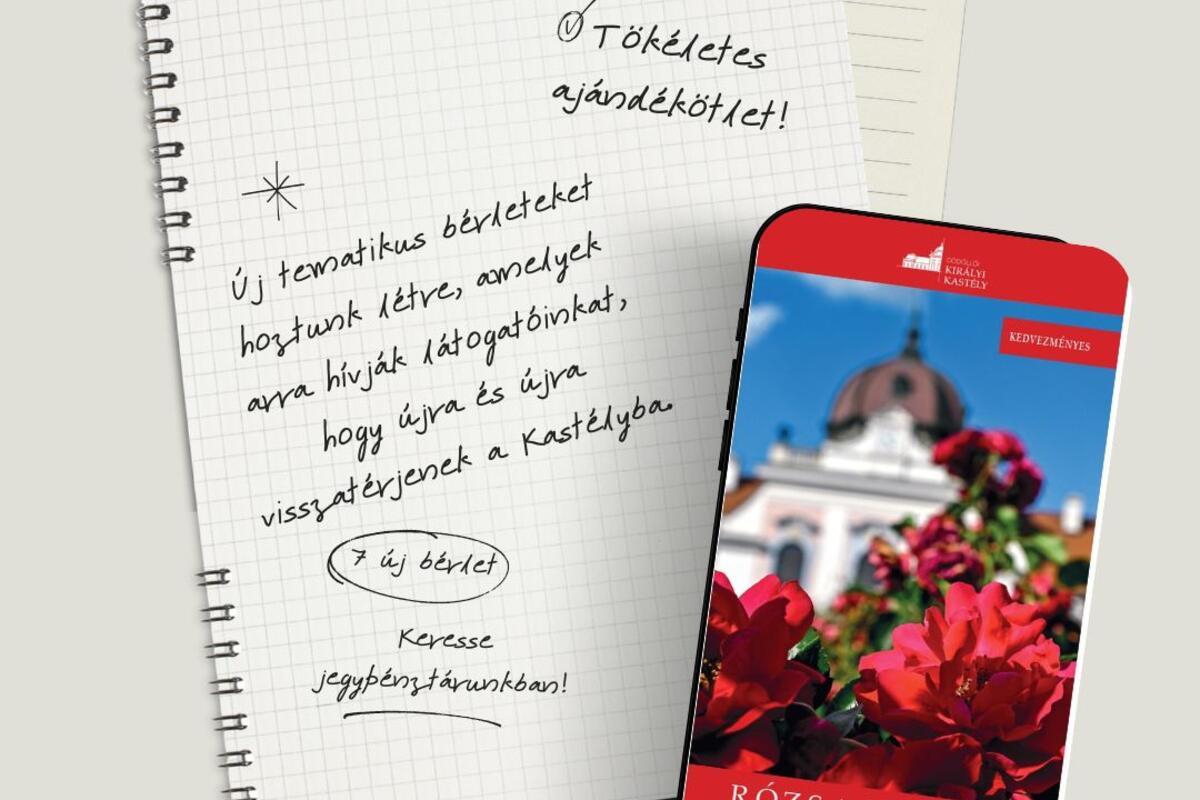 Tökéletes
ajándékötlet!
Új tematikus bérleteket
hoztunk létre, amelyek
arra hívják látogatóinkat,
hogy újra és újra
visszatérjenek a Kastélyba.
7 új bérlet
Keresse
jegypénztárunkban!
GÖDÖLLŐI
KIRÁLYI
KASTÉLY
KEDVEZMÉNYES